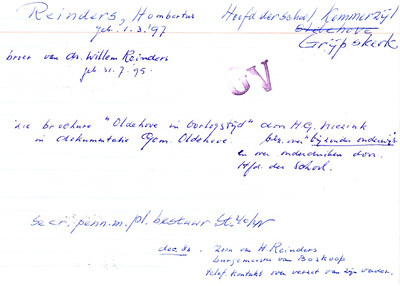 Reinders, Hombertus Hoofd der school, Kommerzijl
geb. 1.3.'97 Oldehove
Grijpskerk
broer van ds. Willem Reinders
geb. 31.7.95.
OV
zie brochure "Oldehove in Oorlogstijd" door H.G. Niezink
in dokumentatie Gem. Oldehove. blz. over "bijzonder onderwijs"
en over onderduiken door
Hfd. der School.
Secr. penn.m. pl. bestuur St. 40/47
dec. 84. Zoon van H. Reinders
burgemeester van Boskoop
telef. kontakt over verzet van zijn vader.